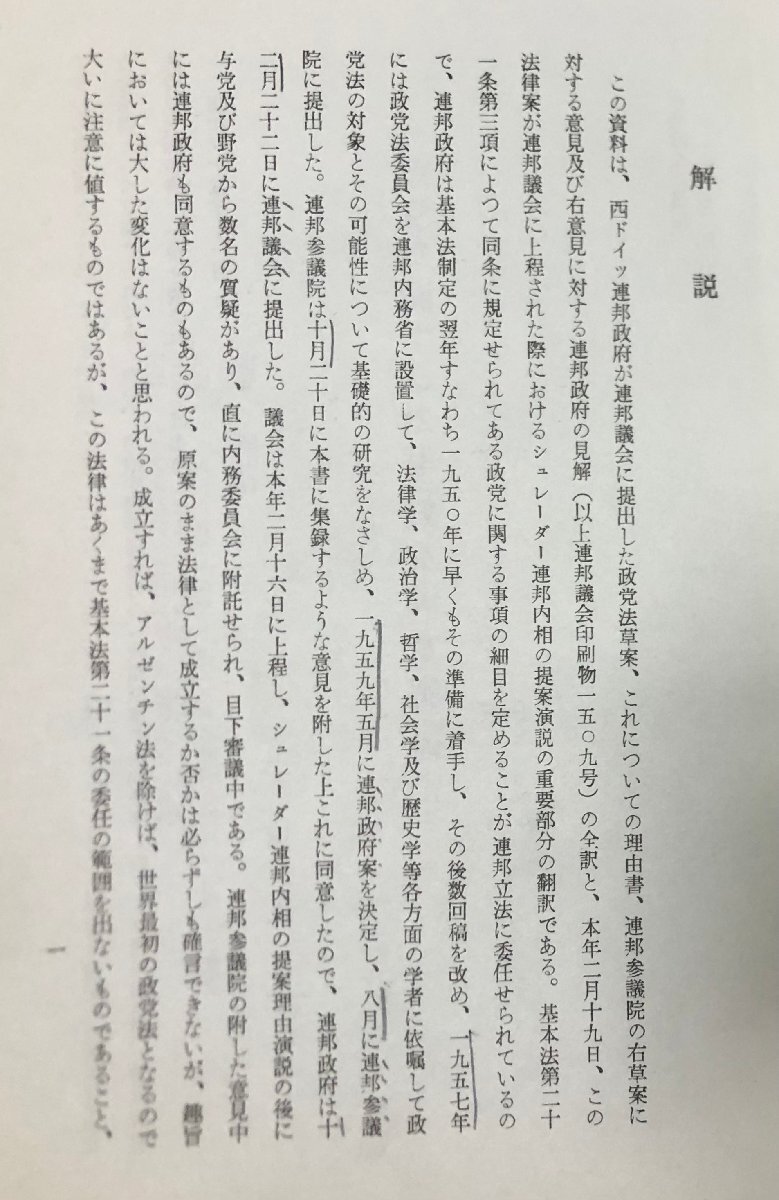 解説
この資料は、西ドイツ連邦政府が連邦議会に提出した政党法草案、これについての理由書、連邦参議院の右草案に
対する意見及び右意見に対する連邦政府の見解（以上連邦議会印刷物一五〇九号）の全訳と、本年二月十九日、この
法律案が連邦議会に上程された際におけるシュレーダー連邦内相の提案演説の重要部分の翻訳である。基本法第二十
一条第三項によつて同条に規定せられてある政党に関する事項の細目を定めることが連邦立法に委任せられているの
で、連邦政府は基本法制定の翌年すなわち一九五〇年に早くもその準備に着手し、その後数回稿を改め、一九五七年
には政党法委員会を連邦内務省に設置して、法律学、政治学、哲学、社会学及び歴史学等各方面の学者に依嘱して政
党法の対象とその可能性について基礎的の研究をなさしめ、一九五九年五月に連邦政府案を決定し、八月に連邦参議
院に提出した。連邦参議院は十月二十日に本書に集録するような意見を附した上これに同意したので、連邦政府は十
二月二十二日に連邦議会に提出した。議会は本年二月十六日に上程し、シュレーダー連邦内相の提案理由演説の後に
与党及び野党から数名の質疑があり、直に内務委員会に附託せられ、目下審議中である。連邦参議院の附した意見中
には連邦政府も同意するものもあるので、原案のまま法律として成立するか否かは必らずしも確言できないが、趣旨
においては大した変化はないことと思われる。成立すれば、アルゼンチン法を除けば、世界最初の政党法となるので
大いに注意に値するものではあるが、この法律はあくまで基本法第二十一条の委任の範囲を出ないものであること、
一